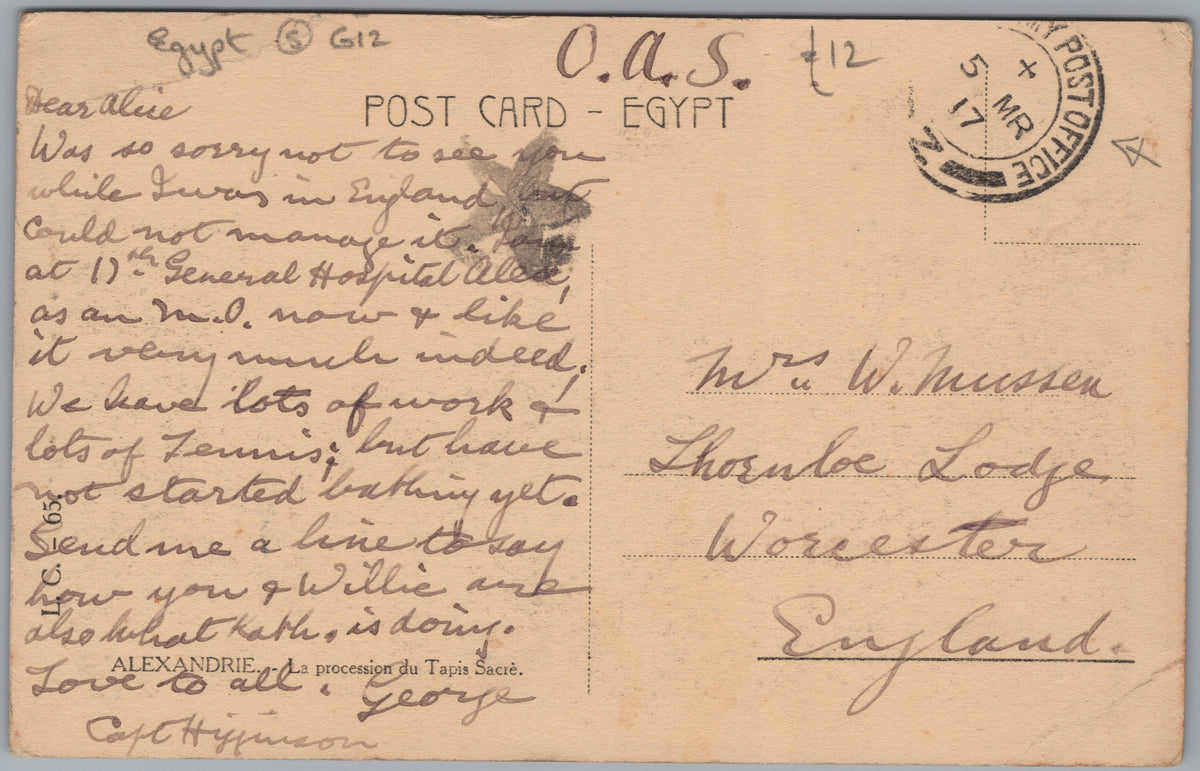 Egypt (5) G12
O.A.S.
£12
POST CARD - EGYPT
MY POST OFFICE
X
5 MR
17
Z
Dear Alice
Was so sorry not to see you
while I was in England, but
could not manage it. I am
at 17th General Hospital Alex,
as an M.O. now & like
it very much indeed.
We have lots of work &
lots of Tennis; but have
not started bathing yet.
Send me a line to say
how you & Willie are
also what Kath. is doing.
Love to all. George
Capt Higginson
Mrs W. Mussen
Thornloe Lodge
Worcester
England.
L. C. - 65.
ALEXANDRIE. - La procession du Tapis Sacrè.